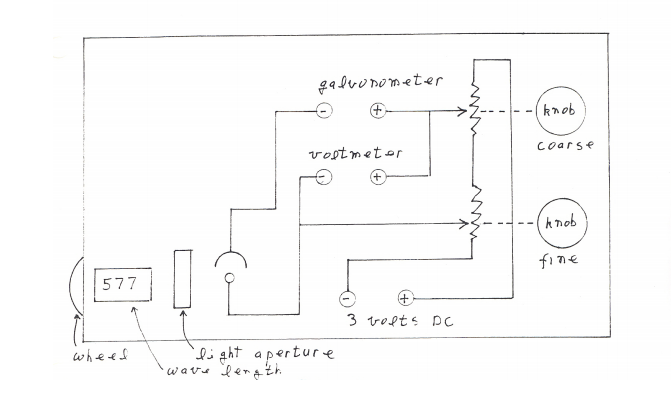 galvonometer
- +
knob
coarse
voltmeter
- +
knob
fine
577
- +
3 volts DC
wheel
light aperture
wave length